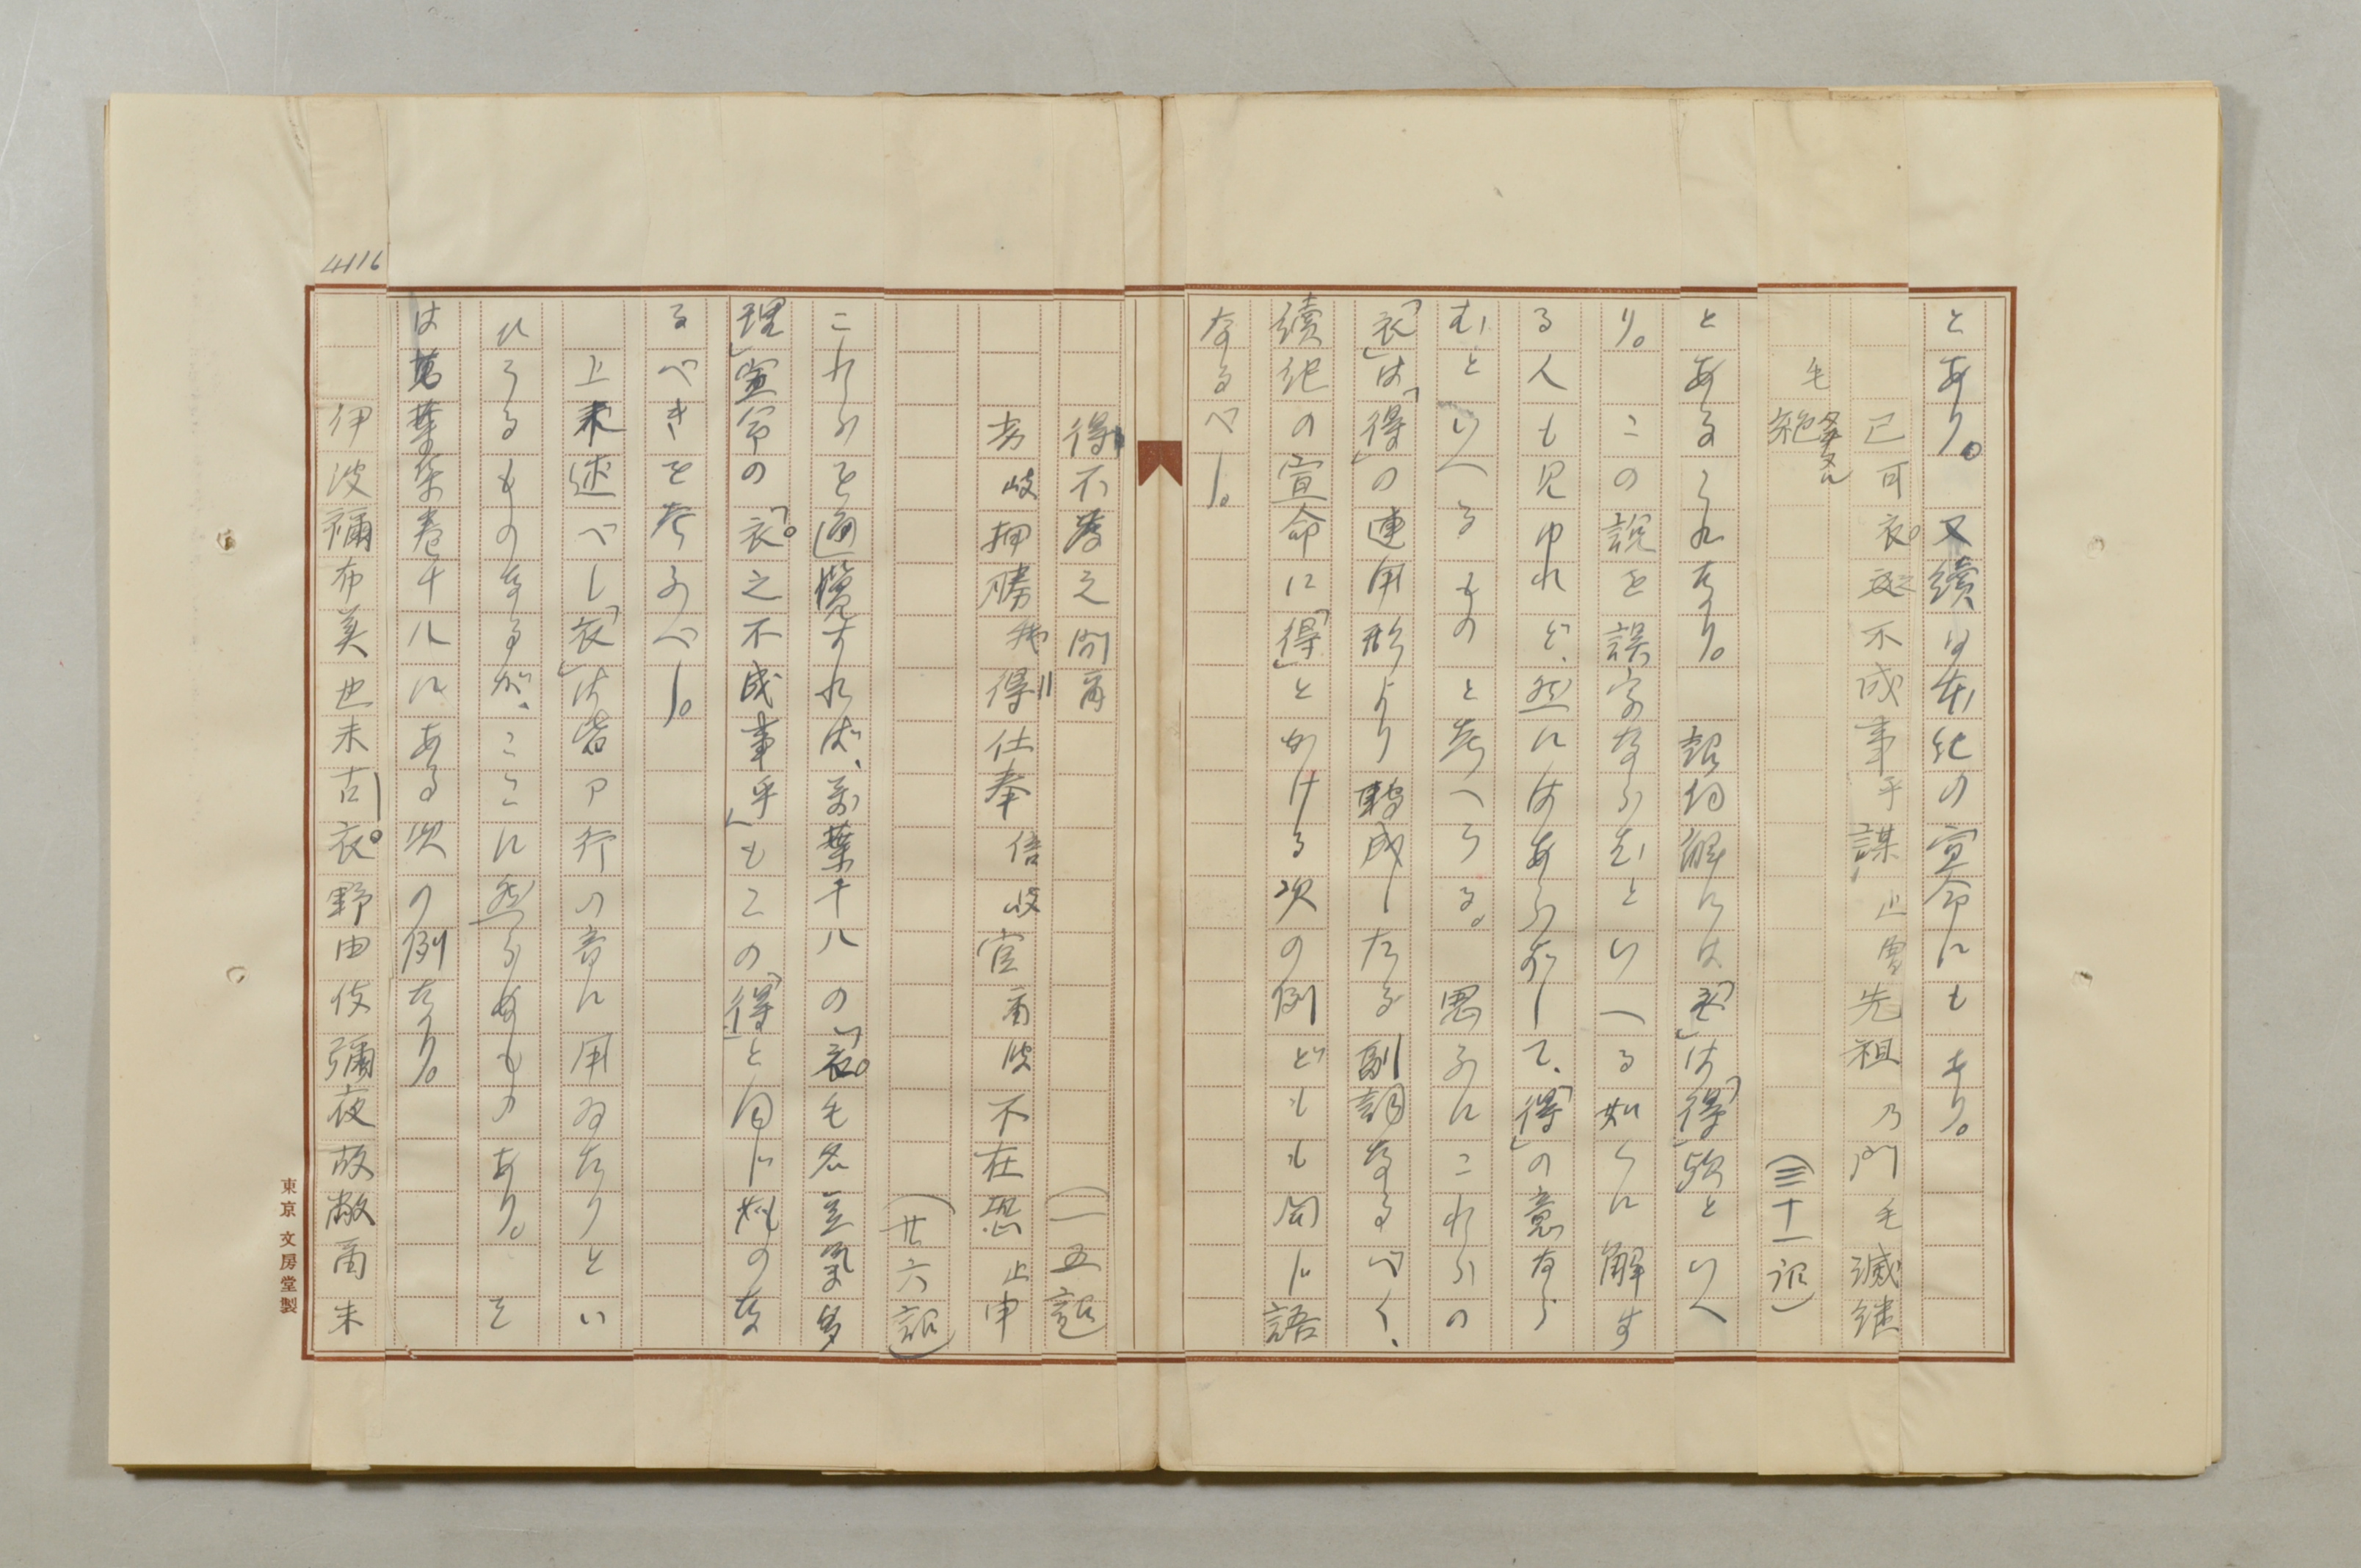 とあり。又續日本紀の宣命にもあり。
己可衣之不成事乎謀止曽先祖乃門毛滅継
毛絶
(三十一詔)
とあるこれなり。詔詞解には「衣」は「得」歟といへ
り。この説を誤字ならむといへる如くに解す
る人も見ゆれど、然にはあらずして、「得」の意なら
むといへるものと考へらる。思ふにこれらの
「衣」は「得」の連用形より轉成したる副詞なるべく、
續紀の宣命に「得」とかける次の例どもも同じ語
なるべし。
得不為之間爾
(一五詔)
岐押勝我得仕奉倍岐官爾波不在恐止申
(廿六詔)
これらを通覽すれば、萬葉十八の「衣毛名豆氣多
理」宣命の「衣之不成事乎」もこの「得」と同じ
るべきを考ふべし。
上来述べし「衣」は皆ア行の音に用ゐたりとい
ひうるものなるが、ここに然らぬものあり。そ
は萬葉集巻十八にある次の例なり。
伊波禰布美也未古衣野由伎彌夜故敝爾末
4116
東京 文房堂製